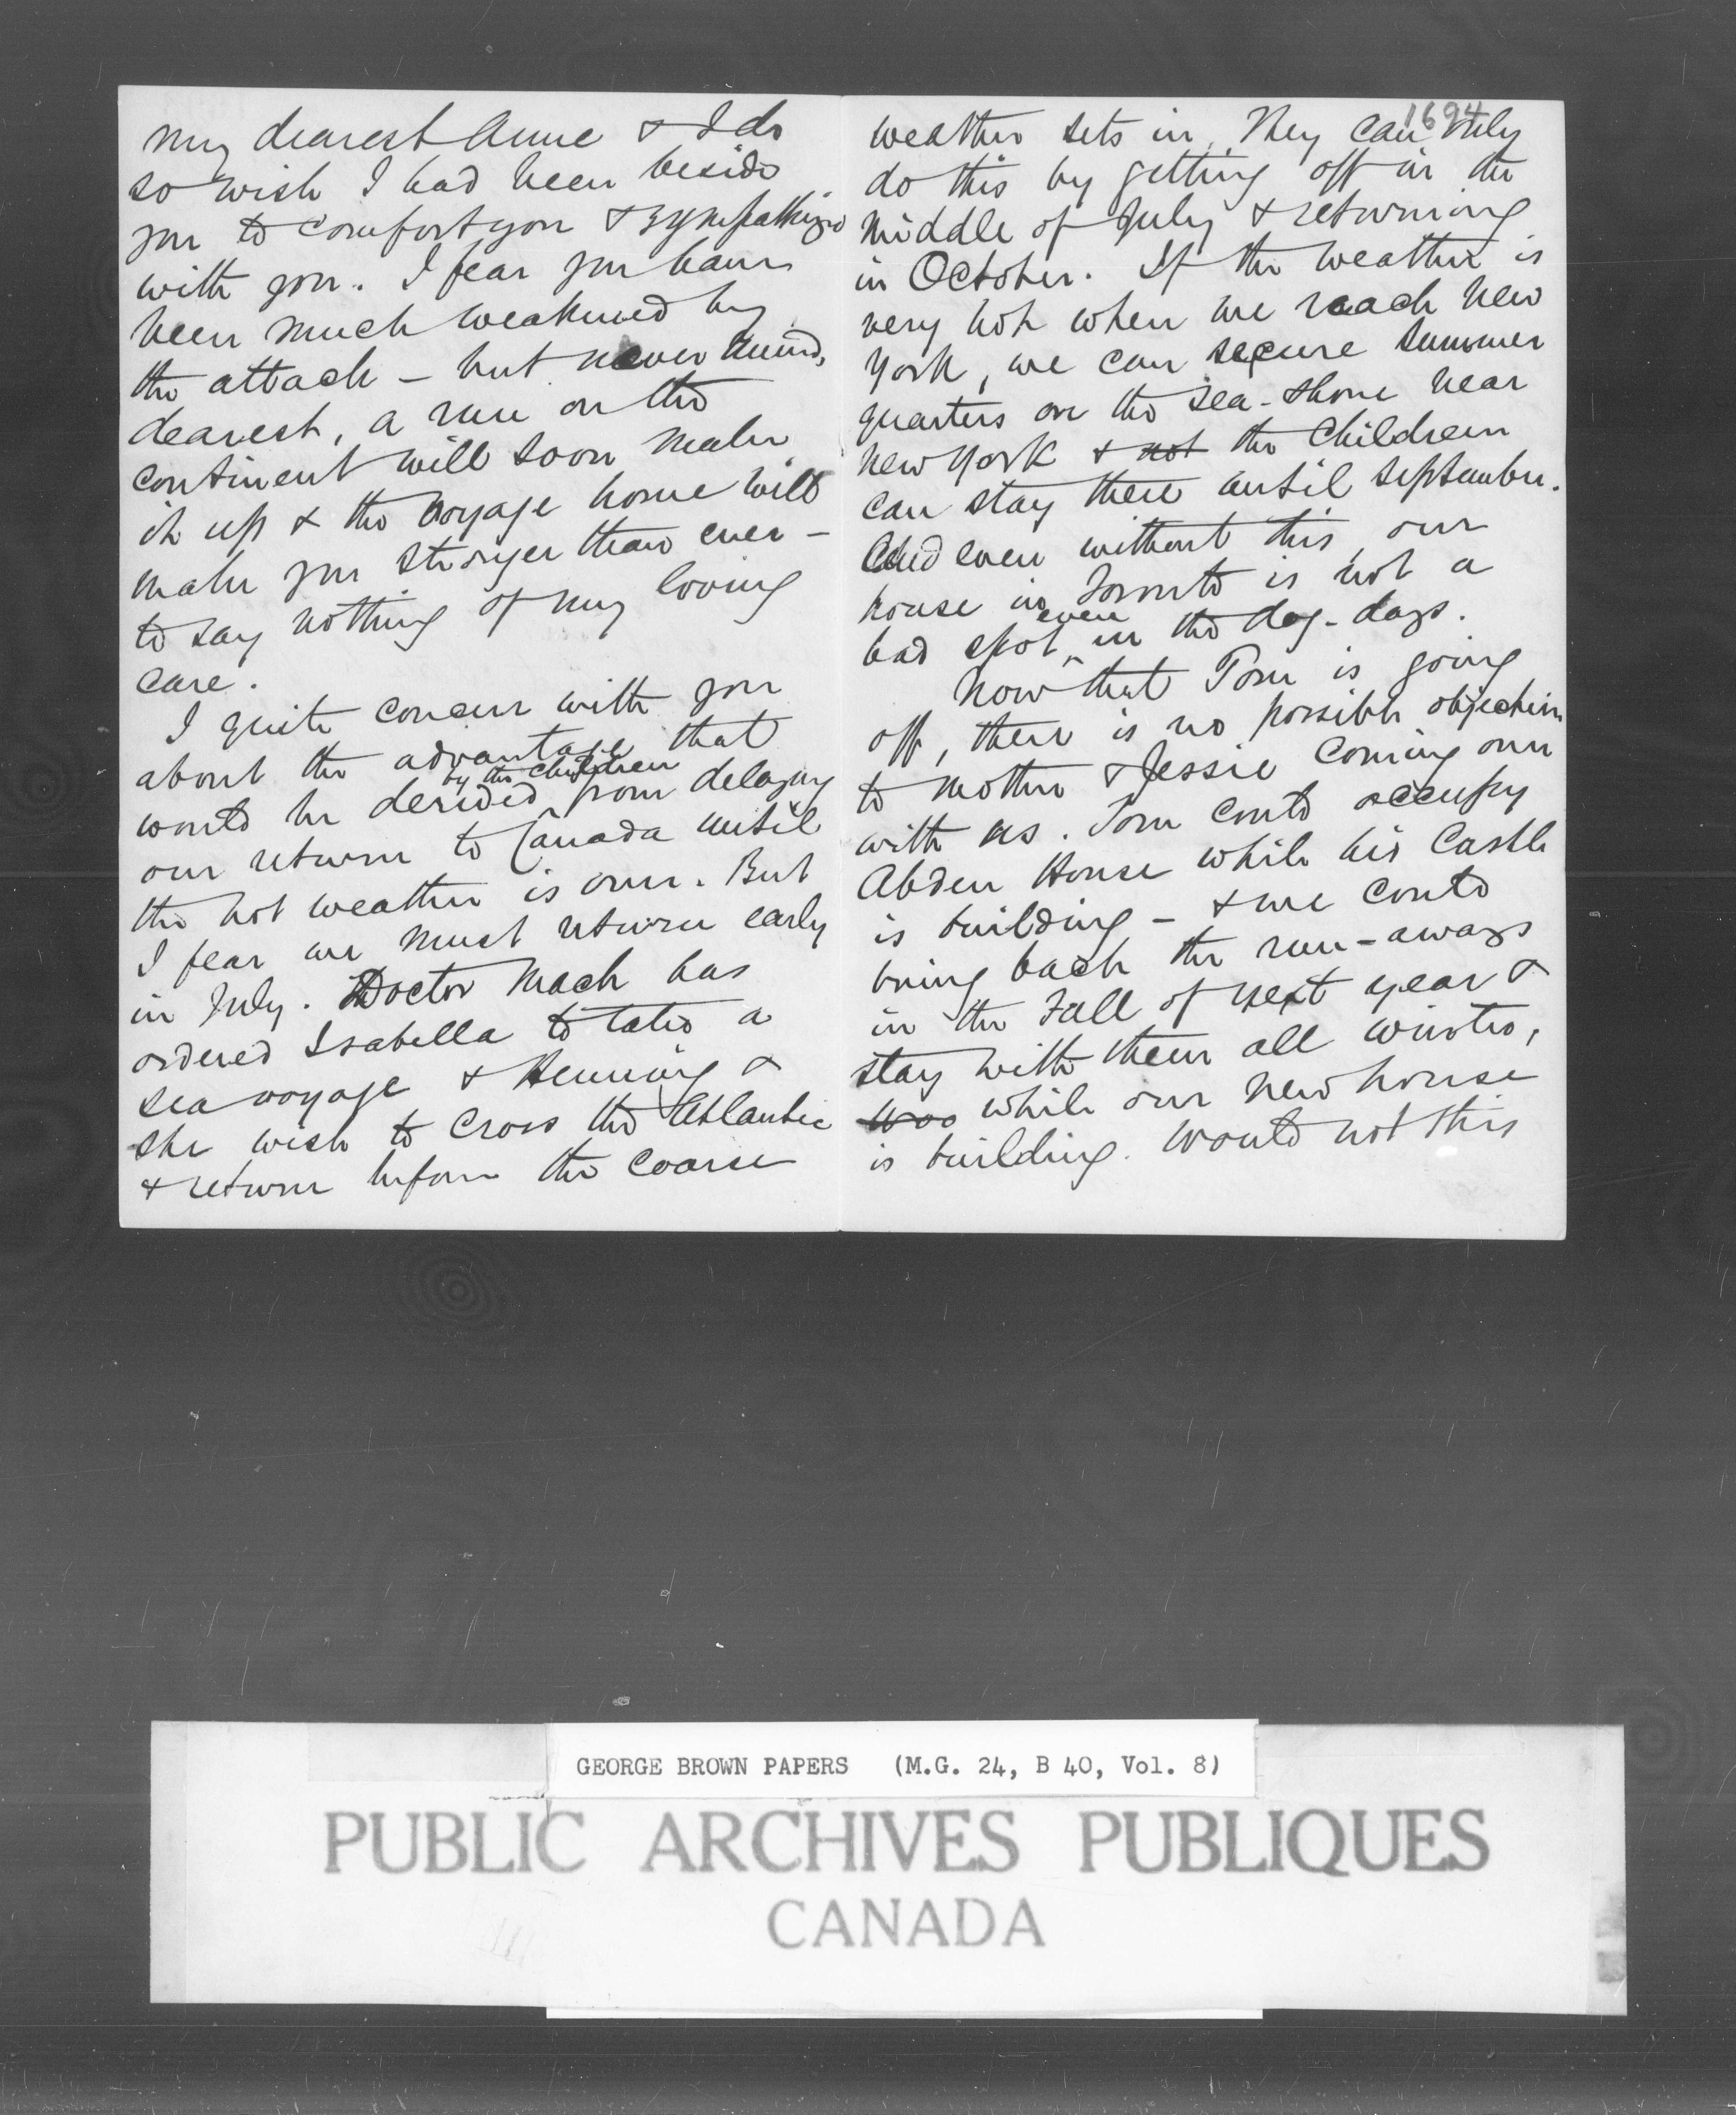 my dearest Anne & I do
so wish I had been beside
you to comfort you & sympathize
with you. I fear you have
been much weakened by
the attack - but never mind,
dearest, a run on the
continent will soon make
it up & the voyage home will
make you stronger than ever -
to say nothing of my loving
care.
I quite concur with you
about the advantage that
would be derived by the children from delaying
our return to Canada until
the hot weather is over. But
I fear we must return early
in July. Doctor Mack has
ordered Isabella to take a
sea voyage & Henning &
she wish to cross the Atlantic
& return before the coarse
1694
weather sets in. They can only
do this by getting off in the
middle of July & returning
in October. If the weather is
very hot when we reach New
York, we can secure summer
quarters on the sea-shore near
New York & not the children
can stay there until September.
And even without this, our
house in Toronto is not a
bad spot even in the dog-days.
Now that Tom is going
off, there is no possible objection
to Mother & Jessie coming over
with us. Tom could occupy
Abden House while his Castle
is building - & we could
bring back the run-aways
in the Fall of next year &
stay with them all winter,
while our new house
is building. Would not this
GEORGE BROWN PAPERS (M.G. 24, B 40, Vol. 8)
PUBLIC ARCHIVES PUBLIQUES
CANADA